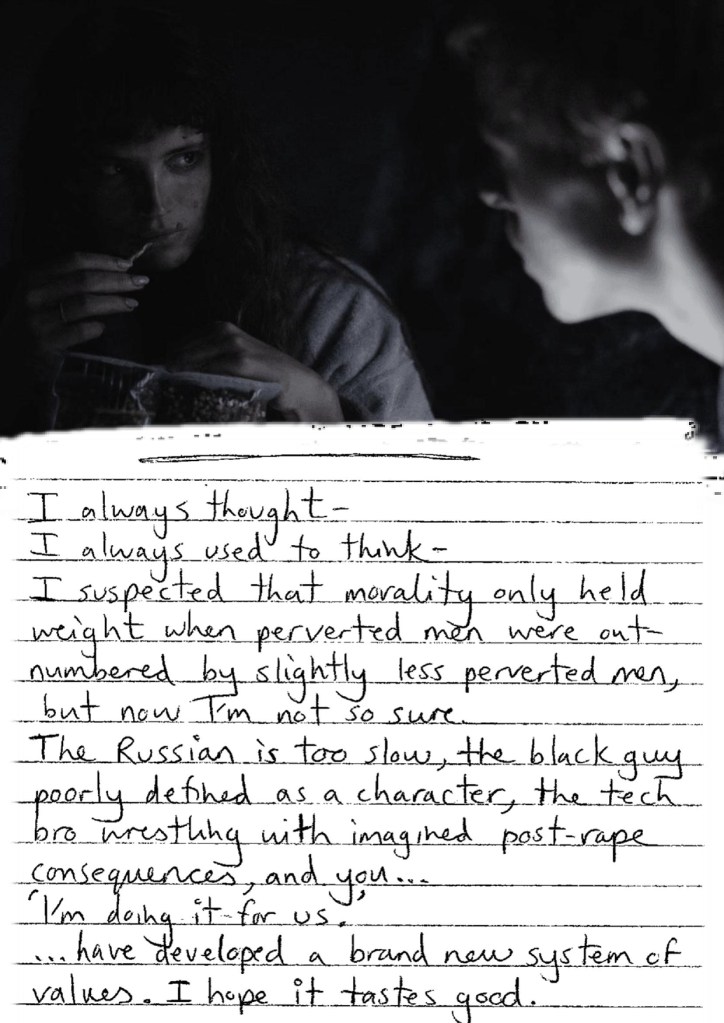 I always thought-
I always used to think-
I suspected that morality only held
weight when perverted men were out-
numbered by slightly less perverted men,
but now I'm not so sure.
The Russian is too slow, the black guy
poorly defined as a character, the tech
bro wrestling with imagined post-rape
consequences, and you...
'I'm doing it for us.'
...have developed a brand new system of
values. I hope it tastes good.